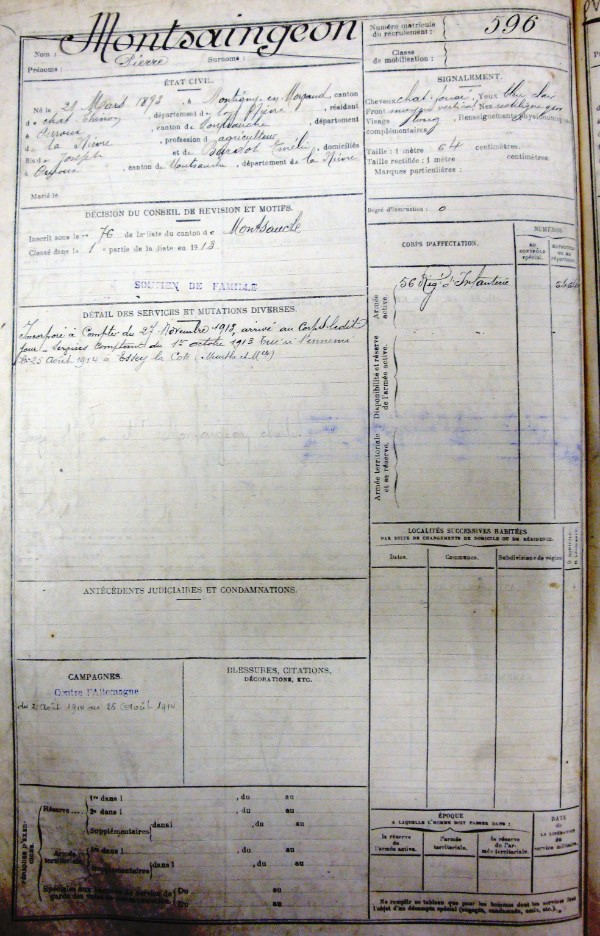 Montsaingeon
Nom :
Prénoms : Pierre Surnoms :
Numéro matricule du recrutement : 596
Classe de mobilisation :
ÉTAT CIVIL.
Né le 21 Mars 1893, à Montigny-en-Morvand, canton
d chat Chinon, département de la Nièvre, résidant
à Ouroux, canton de Montsauche, département
de la Nièvre, profession d agriculteur
fils de Joseph et de Bardot, domiciliés
à Ouroux, canton de Montsauche, département de la Nièvre
Marié le
SIGNALEMENT.
Cheveux chat. foncé, Yeux
Front moyen vertical Nez rectiligne
Visage long, Renseignements physionomiques
complémentaires
Taille : 1 mètre 64 centimètres.
Taille rectifiée : 1 mètre centimètres.
Marques particulières :
Degré d'instruction : 0
DÉCISION DU CONSEIL DE RÉVISION ET MOTIFS.
Inscrit sous le n° 76 de la liste du canton de Montsauche
Classé dans la 1e partie de la liste en 1913
SOUTIEN DE FAMILLE
DÉTAIL DES SERVICES ET MUTATIONS DIVERSES.
Incorporé à compter du 27 Novembre 1913, arrivé au Corps ledit
jour. Services comptant du 1er octobre 1913 Tué à l'ennemi
le 25 Août 1914 à Essey la Côte (Meurthe et Mlle)
CORPS D'AFFECTATION.
NUMÉROS
AU CONTRÔLE SPÉCIAL.
Armée active.
56 Rég. d'Infanterie
Disponibilité et réserve de l'armée active.
Armée territoriale et sa réserve.
LOCALITÉS SUCCESSIVES HABITÉES
PAR SUITE DE CHANGEMENTS DE DOMICILE OU DE RÉSIDENCE.
Dates. Communes. Subdivisions de région
ANTÉCÉDENTS JUDICIAIRES ET CONDAMNATIONS.
CAMPAGNES.
Contre l'Allemagne
du 2 août 1914 au 25 Août 1914
BLESSURES, CITATIONS,
DÉCORATIONS, ETC.
Réserve
1re dans l , du au
2e dans l , du au
Supplémentaires dans l , du au
Armée territoriale
dans l , du au
Supplémentaires dans l , du au
Spéciales aux hommes du service de garde des voies de communication.
Du au
Du au
ÉPOQUE
A LAQUELLE L'HOMME DOIT PASSER DANS :
la réserve de l'armée active.
l'armée territoriale.
la réserve de l'armée territoriale.
DATE
DE LA LIBÉRATION DU service militaire.
Ne remplir ce tableau que pour les hommes dont les services font
l'objet d'un décompte spécial (engagés, condamnés, omis, etc.).